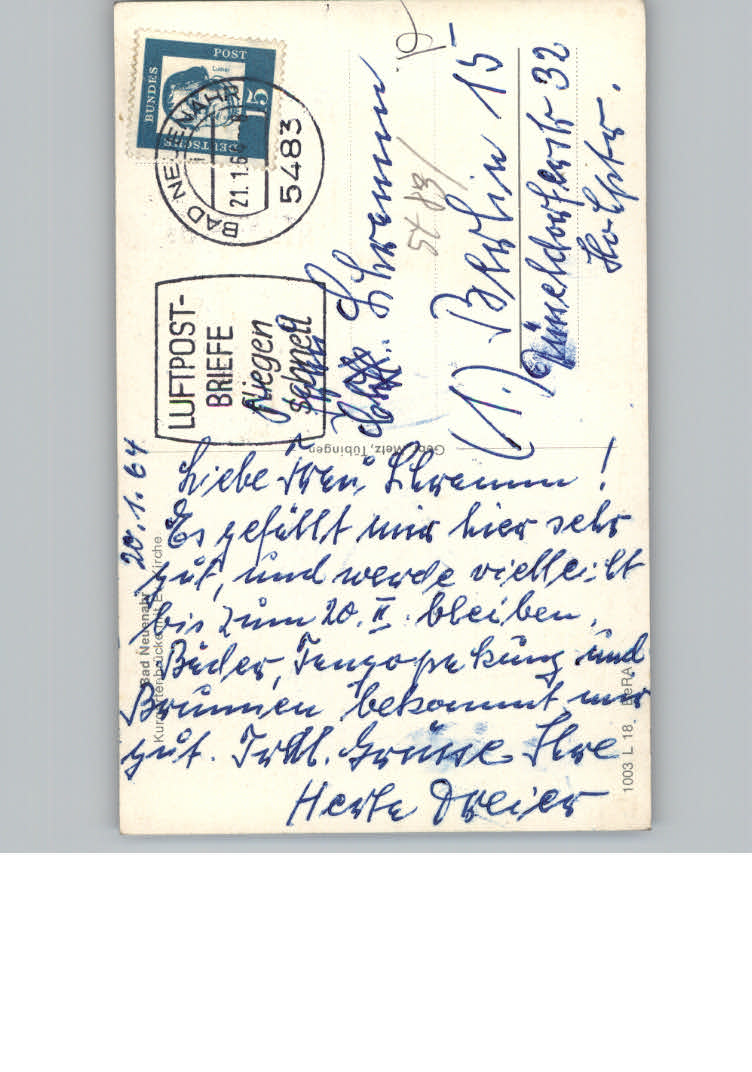 DEUTSCHE BUNDESPOST
Luther
15
BAD NEUENAHR
21.1.64
5483
LUFTPOST-
BRIEFE
fliegen
schnell
Schramm
5483/
(1) Berlin 15
Düsseldorferstr 32
Gebr. Metz, Tübingen
20.1.64
Liebe Frau Schramm!
Es gefällt mir hier sehr
gut, und werde vielleicht
bis zum 20. II. bleiben.
Bäder, Fangopackung und
Brunnen bekommt mir
gut. Frdl. Grüsse Ihre
Herta Dreier
Bad Neuenahr
Kurgartenbrücke mit Ev. Kirche
1003 L 18 BeRA